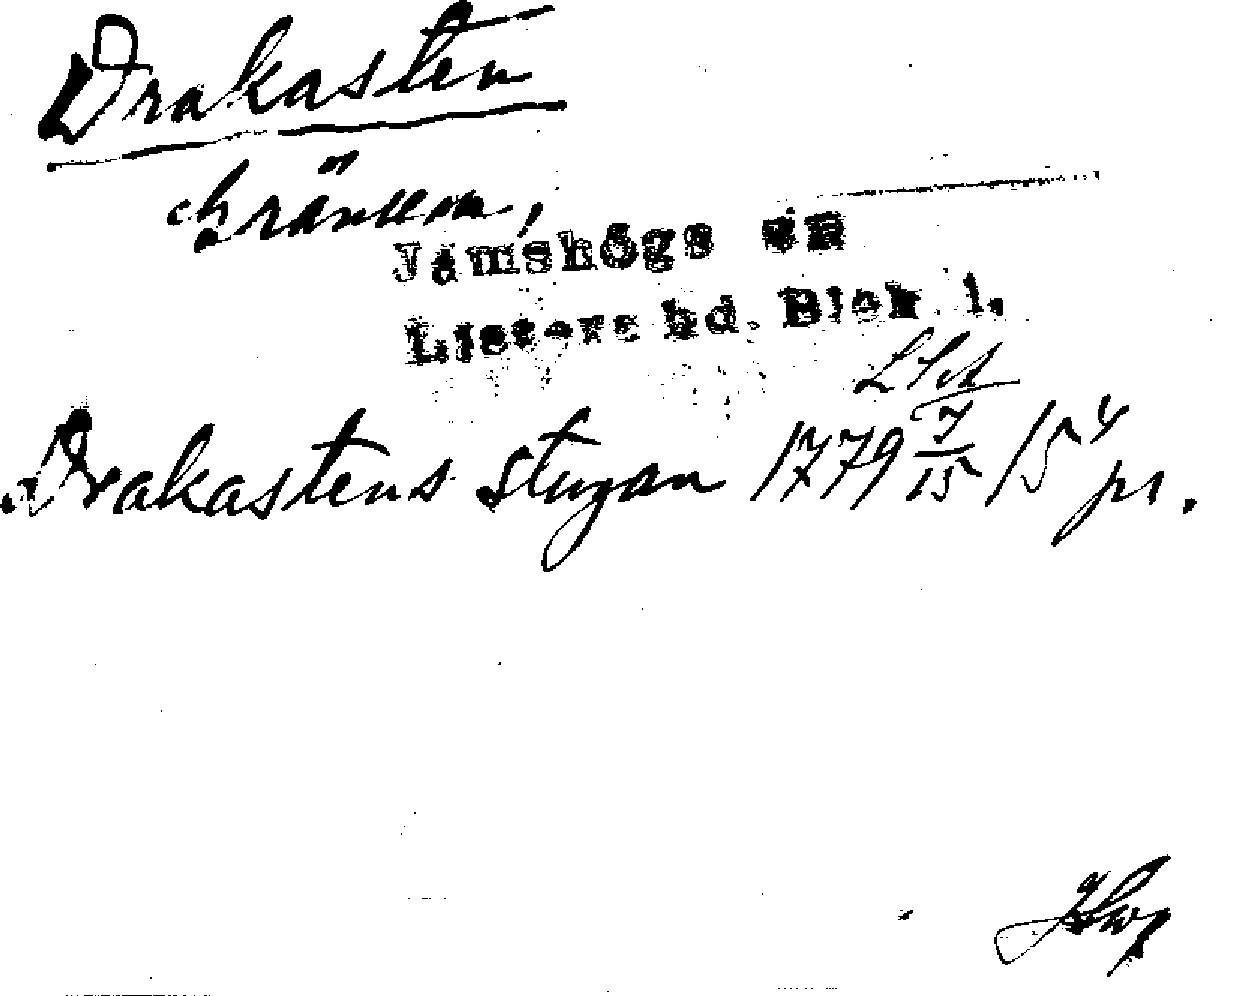 Drakasten
Gränum,
Jämshögs sn
Listers hd. Blek l.
Drakastens stugan 1779 7/15 /15 4 pr.